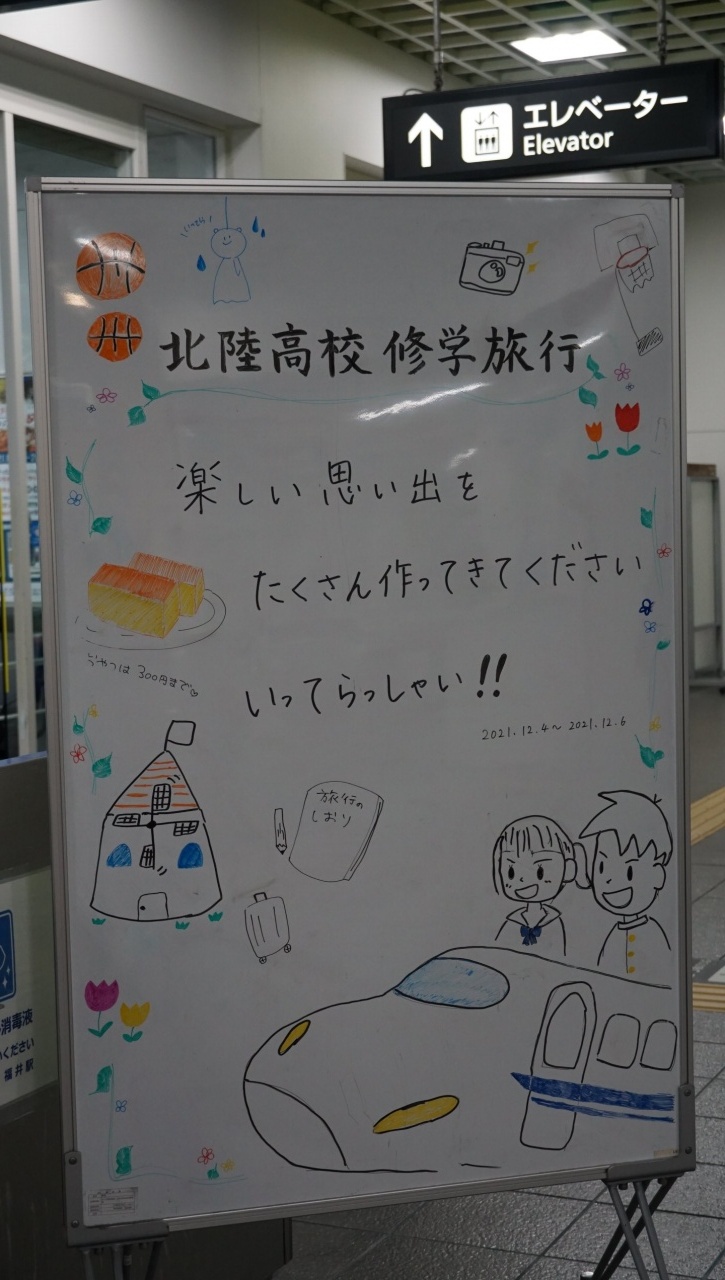 エレベーター
Elevator
北陸高校 修学旅行
楽しい思い出を
たくさん作ってきてください
いってらっしゃい!!
2021.12.4〜2021.12.6
おやつは 300円まで♡
旅行の
しおり
消毒液
ください
福井駅